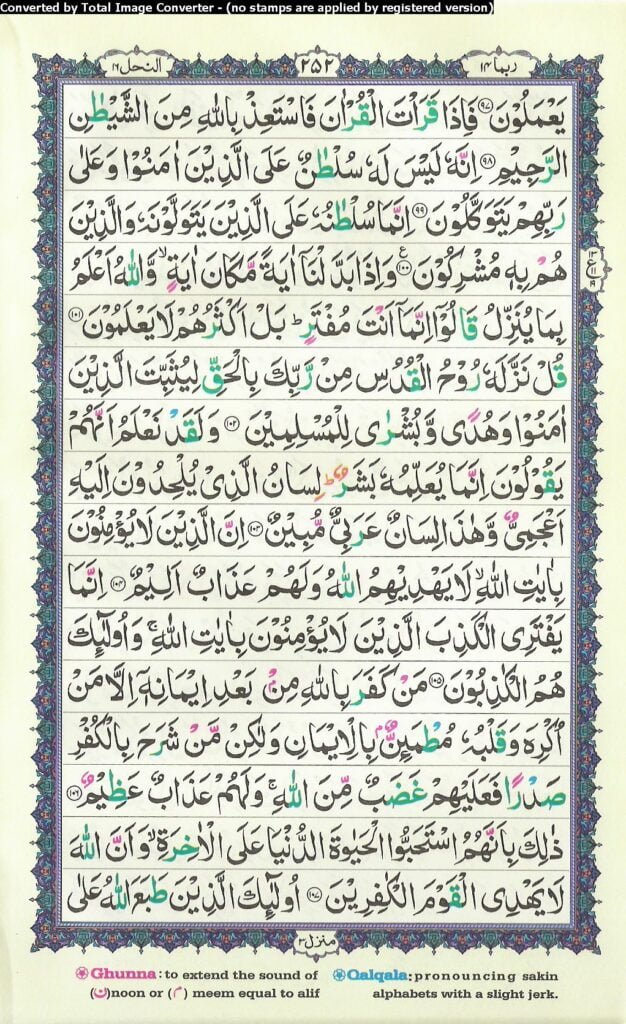 Converted by Total Image Converter - (no stamps are applied by registered version)
ربما ۱۴
۲۵۲
النحل ۱۶
يَعْمَلُوْنَ ﴿۹۷﴾ فَاِذَا قَرَاْتَ الْقُرْاٰنَ فَاسْتَعِذْ بِاللّٰهِ مِنَ الشَّيْطٰنِ
الرَّجِيْمِ ﴿۹۸﴾ اِنَّهٗ لَيْسَ لَهٗ سُلْطٰنٌ عَلَى الَّذِيْنَ اٰمَنُوْا وَعَلٰى
رَبِّهِمْ يَتَوَكَّلُوْنَ ﴿۹۹﴾ اِنَّمَا سُلْطٰنُهٗ عَلَى الَّذِيْنَ يَتَوَلَّوْنَهٗ وَالَّذِيْنَ
هُمْ بِهٖ مُشْرِكُوْنَ ﴿۱۰۰﴾ ع وَاِذَا بَدَّلْنَاۤ اٰيَةً مَّكَانَ اٰيَةٍ ۙ وَّاللّٰهُ اَعْلَمُ
۱۳
ع
۱۱
۱۹
بِمَا يُنَزِّلُ قَالُوْۤا اِنَّمَاۤ اَنْتَ مُفْتَرٍ ؕ بَلْ اَكْثَرُهُمْ لَا يَعْلَمُوْنَ ﴿۱۰۱﴾
قُلْ نَزَّلَهٗ رُوْحُ الْقُدُسِ مِنْ رَّبِّكَ بِالْحَقِّ لِيُثَبِّتَ الَّذِيْنَ
اٰمَنُوْا وَهُدًى وَّبُشْرٰى لِلْمُسْلِمِيْنَ ﴿۱۰۲﴾ وَلَقَدْ نَعْلَمُ اَنَّهُمْ
يَقُوْلُوْنَ اِنَّمَا يُعَلِّمُهٗ بَشَرٌ ؕ لِسَانُ الَّذِيْ يُلْحِدُوْنَ اِلَيْهِ
اَعْجَمِيٌّ وَّهٰذَا لِسَانٌ عَرَبِيٌّ مُّبِيْنٌ ﴿۱۰۳﴾ اِنَّ الَّذِيْنَ لَا يُؤْمِنُوْنَ
بِاٰيٰتِ اللّٰهِ ۙ لَا يَهْدِيْهِمُ اللّٰهُ وَلَهُمْ عَذَابٌ اَلِيْمٌ ﴿۱۰۴﴾ اِنَّمَا
يَفْتَرِى الْكَذِبَ الَّذِيْنَ لَا يُؤْمِنُوْنَ بِاٰيٰتِ اللّٰهِ ۚ وَاُولٰٓئِكَ
هُمُ الْكٰذِبُوْنَ ﴿۱۰۵﴾ مَنْ كَفَرَ بِاللّٰهِ مِنْۢ بَعْدِ اِيْمَانِهٖۤ اِلَّا مَنْ
اُكْرِهَ وَقَلْبُهٗ مُطْمَئِنٌّۢ بِالْاِيْمَانِ وَلٰكِنْ مَّنْ شَرَحَ بِالْكُفْرِ
صَدْرًا فَعَلَيْهِمْ غَضَبٌ مِّنَ اللّٰهِ ۚ وَلَهُمْ عَذَابٌ عَظِيْمٌ ﴿۱۰۶﴾
ذٰلِكَ بِاَنَّهُمُ اسْتَحَبُّوا الْحَيٰوةَ الدُّنْيَا عَلَى الْاٰخِرَةِ ۙ وَاَنَّ اللّٰهَ
لَا يَهْدِى الْقَوْمَ الْكٰفِرِيْنَ ﴿۱۰۷﴾ اُولٰٓئِكَ الَّذِيْنَ طَبَعَ اللّٰهُ عَلٰى
منزل ۳
Ghunna: to extend the sound of
(ن)noon or (م) meem equal to alif
Qalqala: pronouncing sakin
alphabets with a slight jerk.